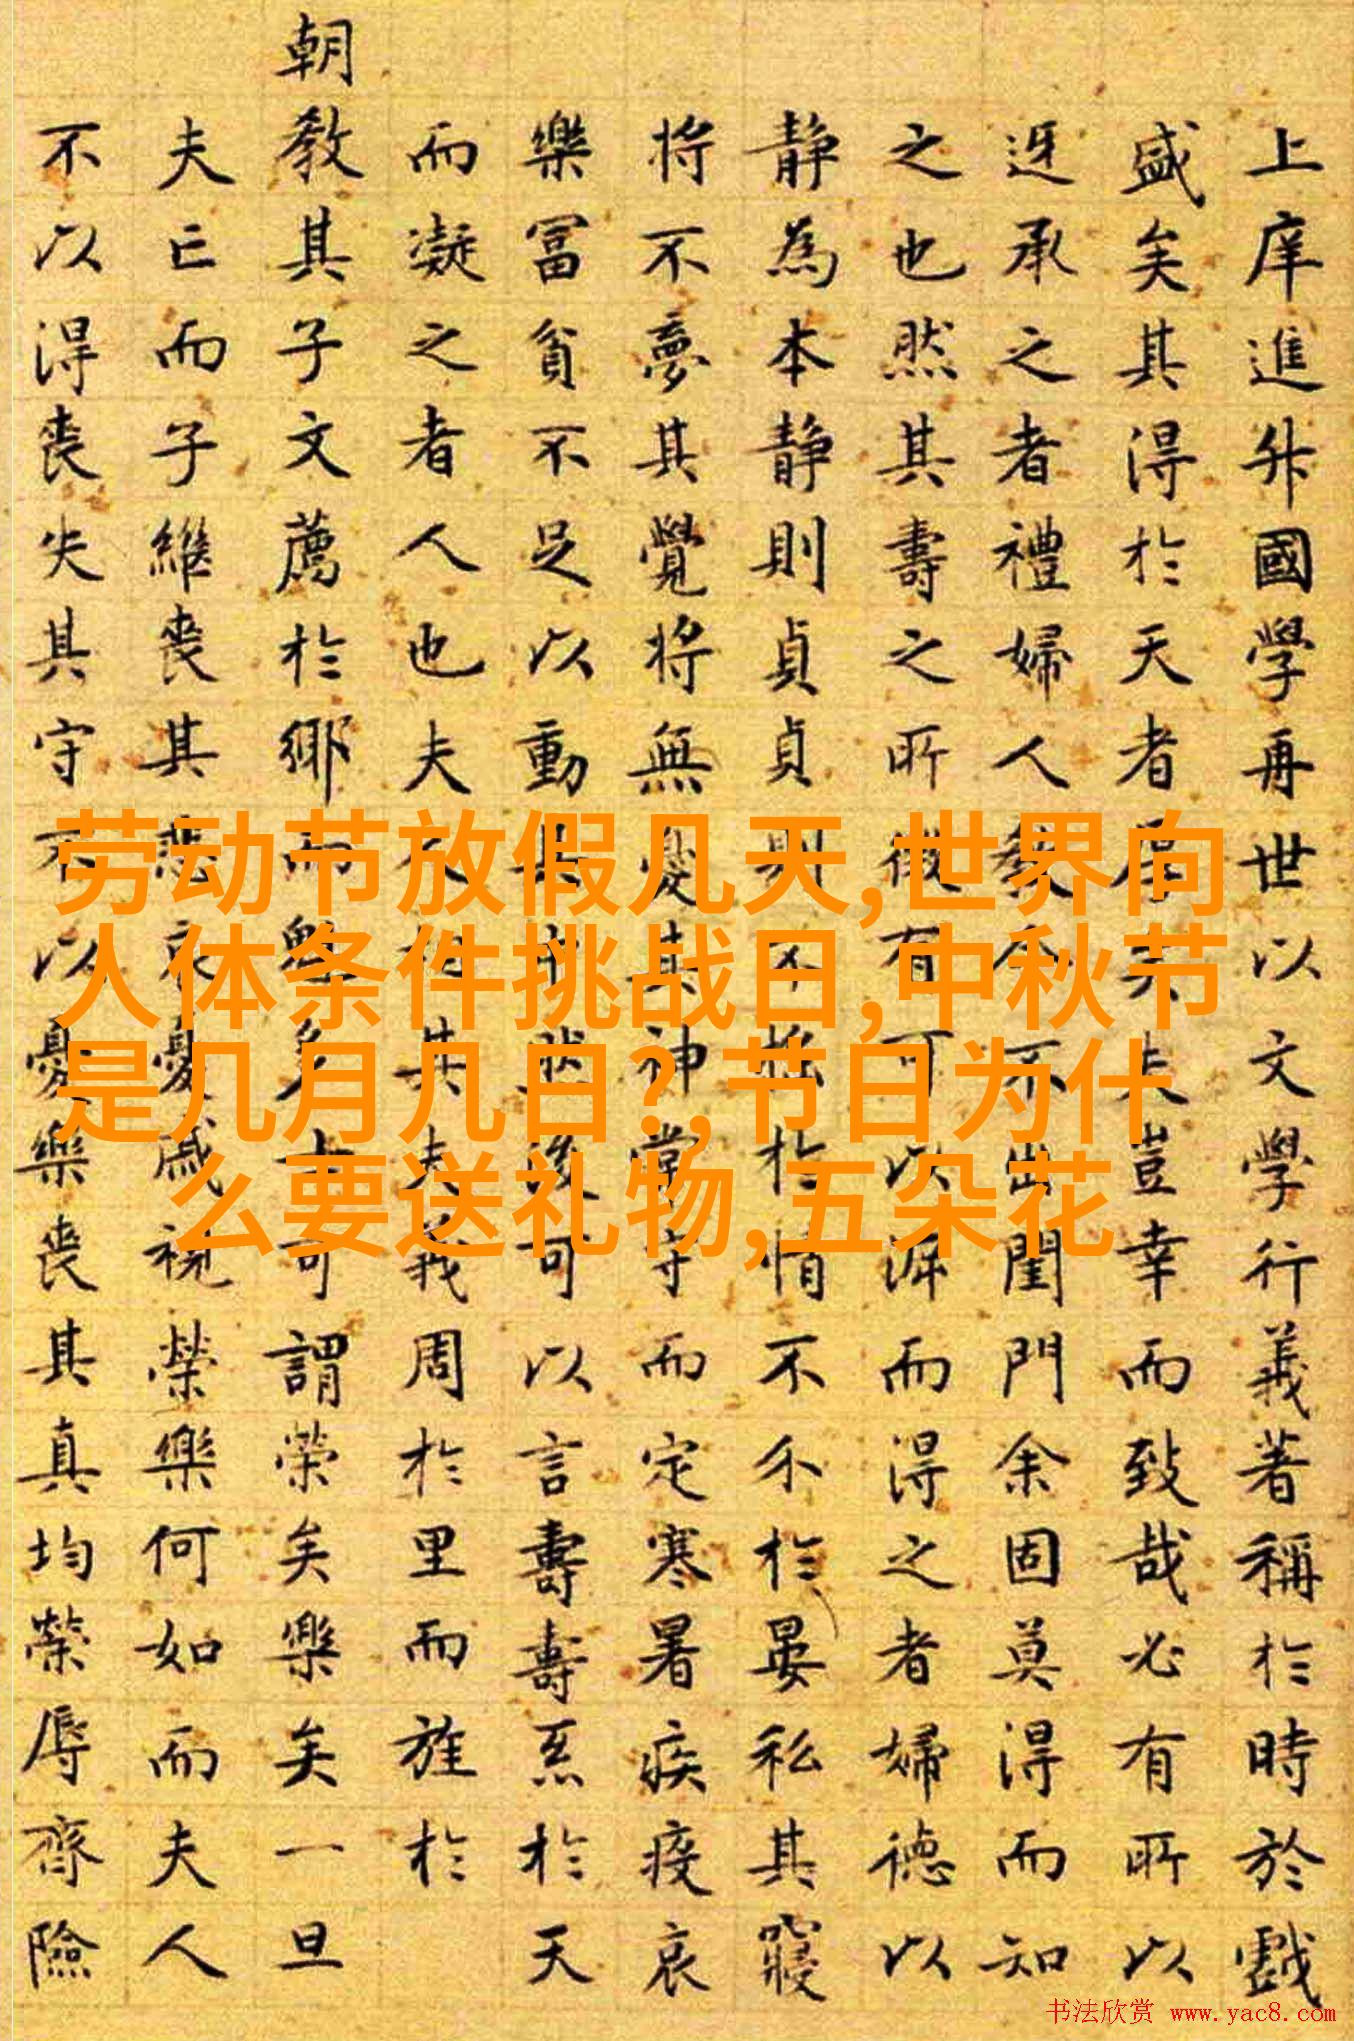 上庠進升國學再世以文學行義著稱於時於戲
盛矣其得於天者厚矣夫豈幸而致哉必有所以
迓承之者禮婦人教令不出閨門余固莫得而知
之也然其壽之所徵有可以而得之者婦德以
靜為本靜則貞貞則不搖於情不尒於晏私其寢
將不夢其覺將無憂其神常守而定寒暑疾疫哀
樂冨貧不足以動其後可以言壽壽於天
而凝之者人也夫人相其夫義周於里而旌於
朝教其子文薦於鄉而多士可謂榮矣樂矣一旦
夫亡而子繼喪其悲哀憂戚視榮樂何如而夫人
不以得喪失其守不以憂樂喪其真均榮辱齊險
劳动节放假几天,世界向
人体条件挑战日,中秋节
是几月几日?,节日为什
么要送礼物,五朵花
书法欣赏 www.yac8.com